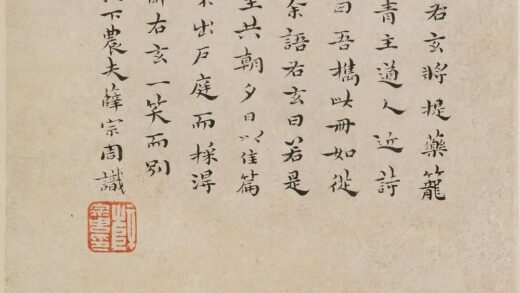 右玄將提藥籠
青主道人近詩
曰吾擕此冊如從
余語右玄曰若是
共朝夕日以佳篇
出戶庭而採得
右玄一笑而別
下農夫薛宗周識